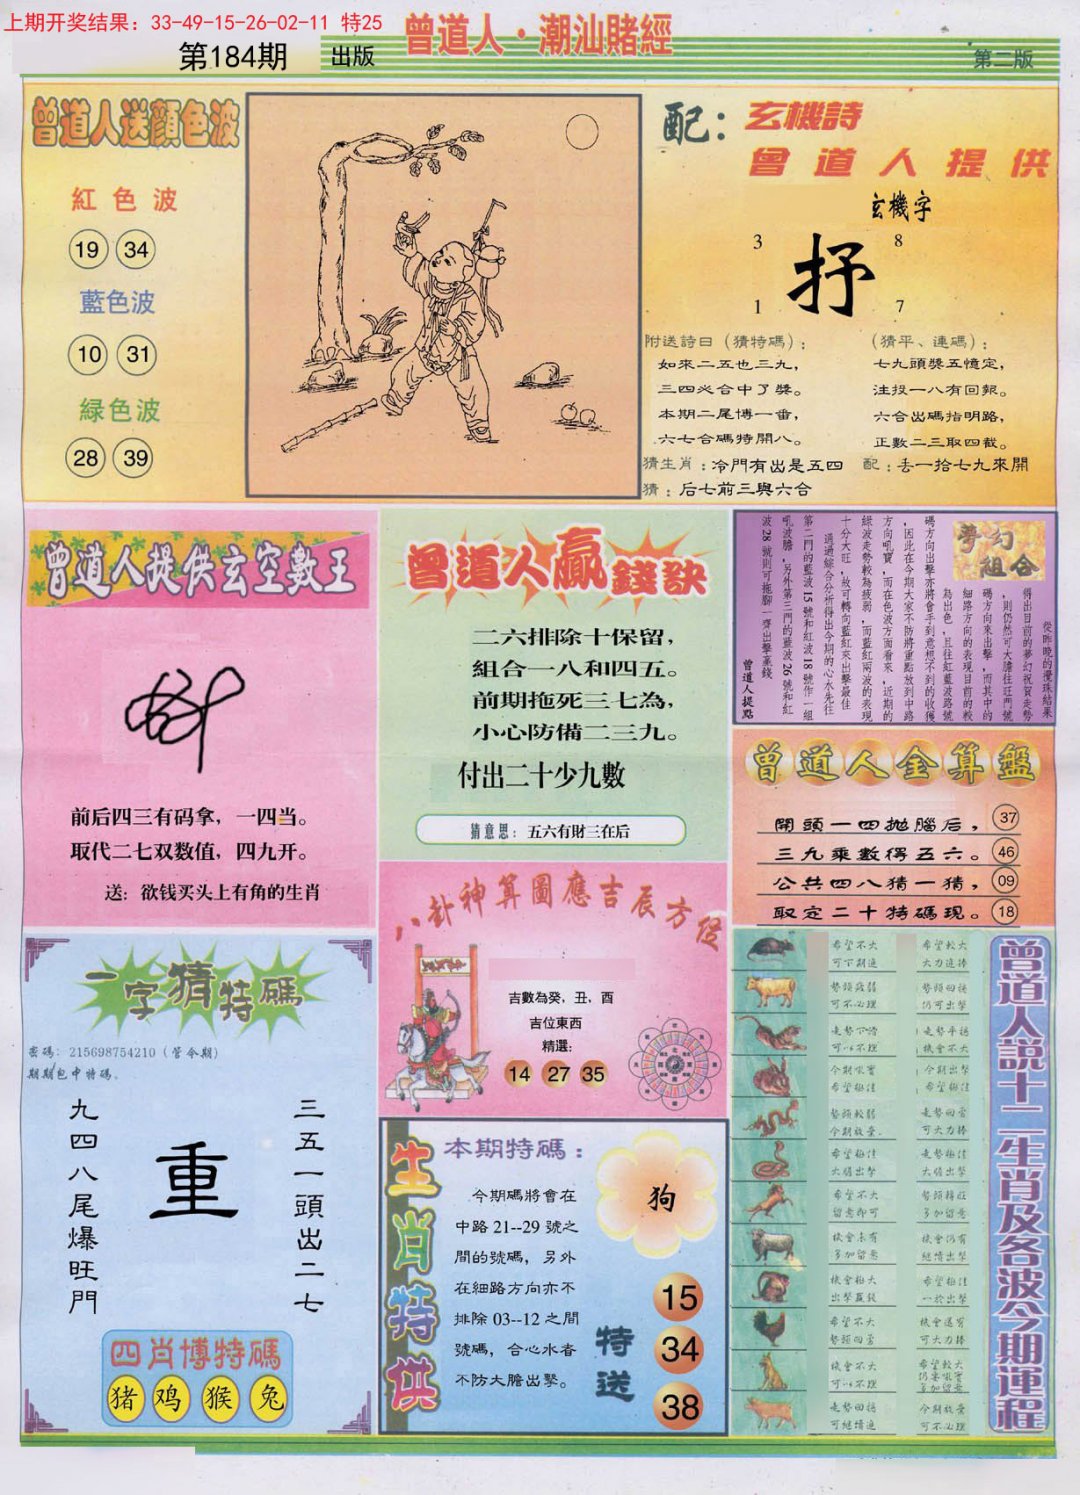 上期开奖结果：33-49-15-26-02-11 特25
曾道人·潮汕賭經
第184期
出版
第二版
曾道人送顔色波
紅色波
19 34
藍色波
10 31
緑色波
28 39
配：玄機詩
曾道人提供
玄機字
3 8
抒
1 7
附送詩曰（猜特碼）；
如來二五也三九，
三四必合中了獎。
本期二尾博一番，
六七合碼特開八。
（猜平、連碼）；
七九頭獎五憶定，
注投一八有回報。
六合出碼指明路，
正數二三取四截。
猜生肖：冷門有出是五四
配：丢一拾七九來開
猜：后七前三與六合
曾道人提供玄空數王
前后四三有码拿，一四当。
取代二七双数值，四九开。
送：欲钱买头上有角的生肖
曾道人贏錢訣
二六排除十保留，
組合一八和四五。
前期拖死三七為，
小心防備二三九。
付出二十少九數
猜意思：五六有財三在后
夢幻組合
從昨晚的攪珠結果
得出目前的夢幻祝賀走勢
，則仍然可大膽往旺門號
碼方向來出擊，而其中的
細路方向的表現目前的較
為出色，且往紅藍波路號
碼方向出擊亦將會手到意想不到的收獲
，因此在今期大家不防將重點放到中路
方向吼寶，而在色波方面看來，近期的
緑波走勢較為疲弱，而藍紅兩波的表現
十分大旺，故可轉向藍紅來出擊最佳
。通過綜合分析得出今期的心水先往
第二門的藍波15號和紅波18號作一組
吼波膽，另外第三門的藍波26號和紅
波28號則可拖腳一齊出擊贏錢
曾道人提點
曾道人全算盤
開頭一四拋腦后，37
三九乘數得五六。46
公共四八猜一猜，09
取定二十特碼現。18
一字猜特碼
密碼：215698754210（管令期）
期期包中特碼。
九四八尾爆旺門
重
三五一頭出二七
四肖博特碼
猪 鸡 猴 兔
八卦神算圖應吉辰方位
吉數為癸，丑，酉
吉位東西
精選：
14 27 35
生肖特供
本期特碼：
今期碼將會在
中路 21--29 號之
間的號碼，另外
在細路方向亦不
排除 03--12 之間
號碼，合心水者
不防大膽出擊。
狗
特送
15
34
38
曾道人説十二生肖及各波今期運程
希望不大
可下期追
希望較大
大力追捧
勢頭疲弱
可不必理
勢頭回揚
仍可出擊
走勢平穩
機會不大
今期吼實
希望極佳
今期出擊
希望極佳
勢頭較弱
今期放棄
走勢回當
可大力捧
希望極佳
大膽出擊
走勢極佳
大膽出擊
希望不大
留意即可
勢頭轉旺
多加留意
機會未有
多加留意
機會仍有
繼續出擊
機會極大
出擊贏錢
希望極佳
希望不大
勢頭回當
可大力捧
機會不大
希望較大
多加留意
走勢回揚
可繼續追
今期放棄
可不必理